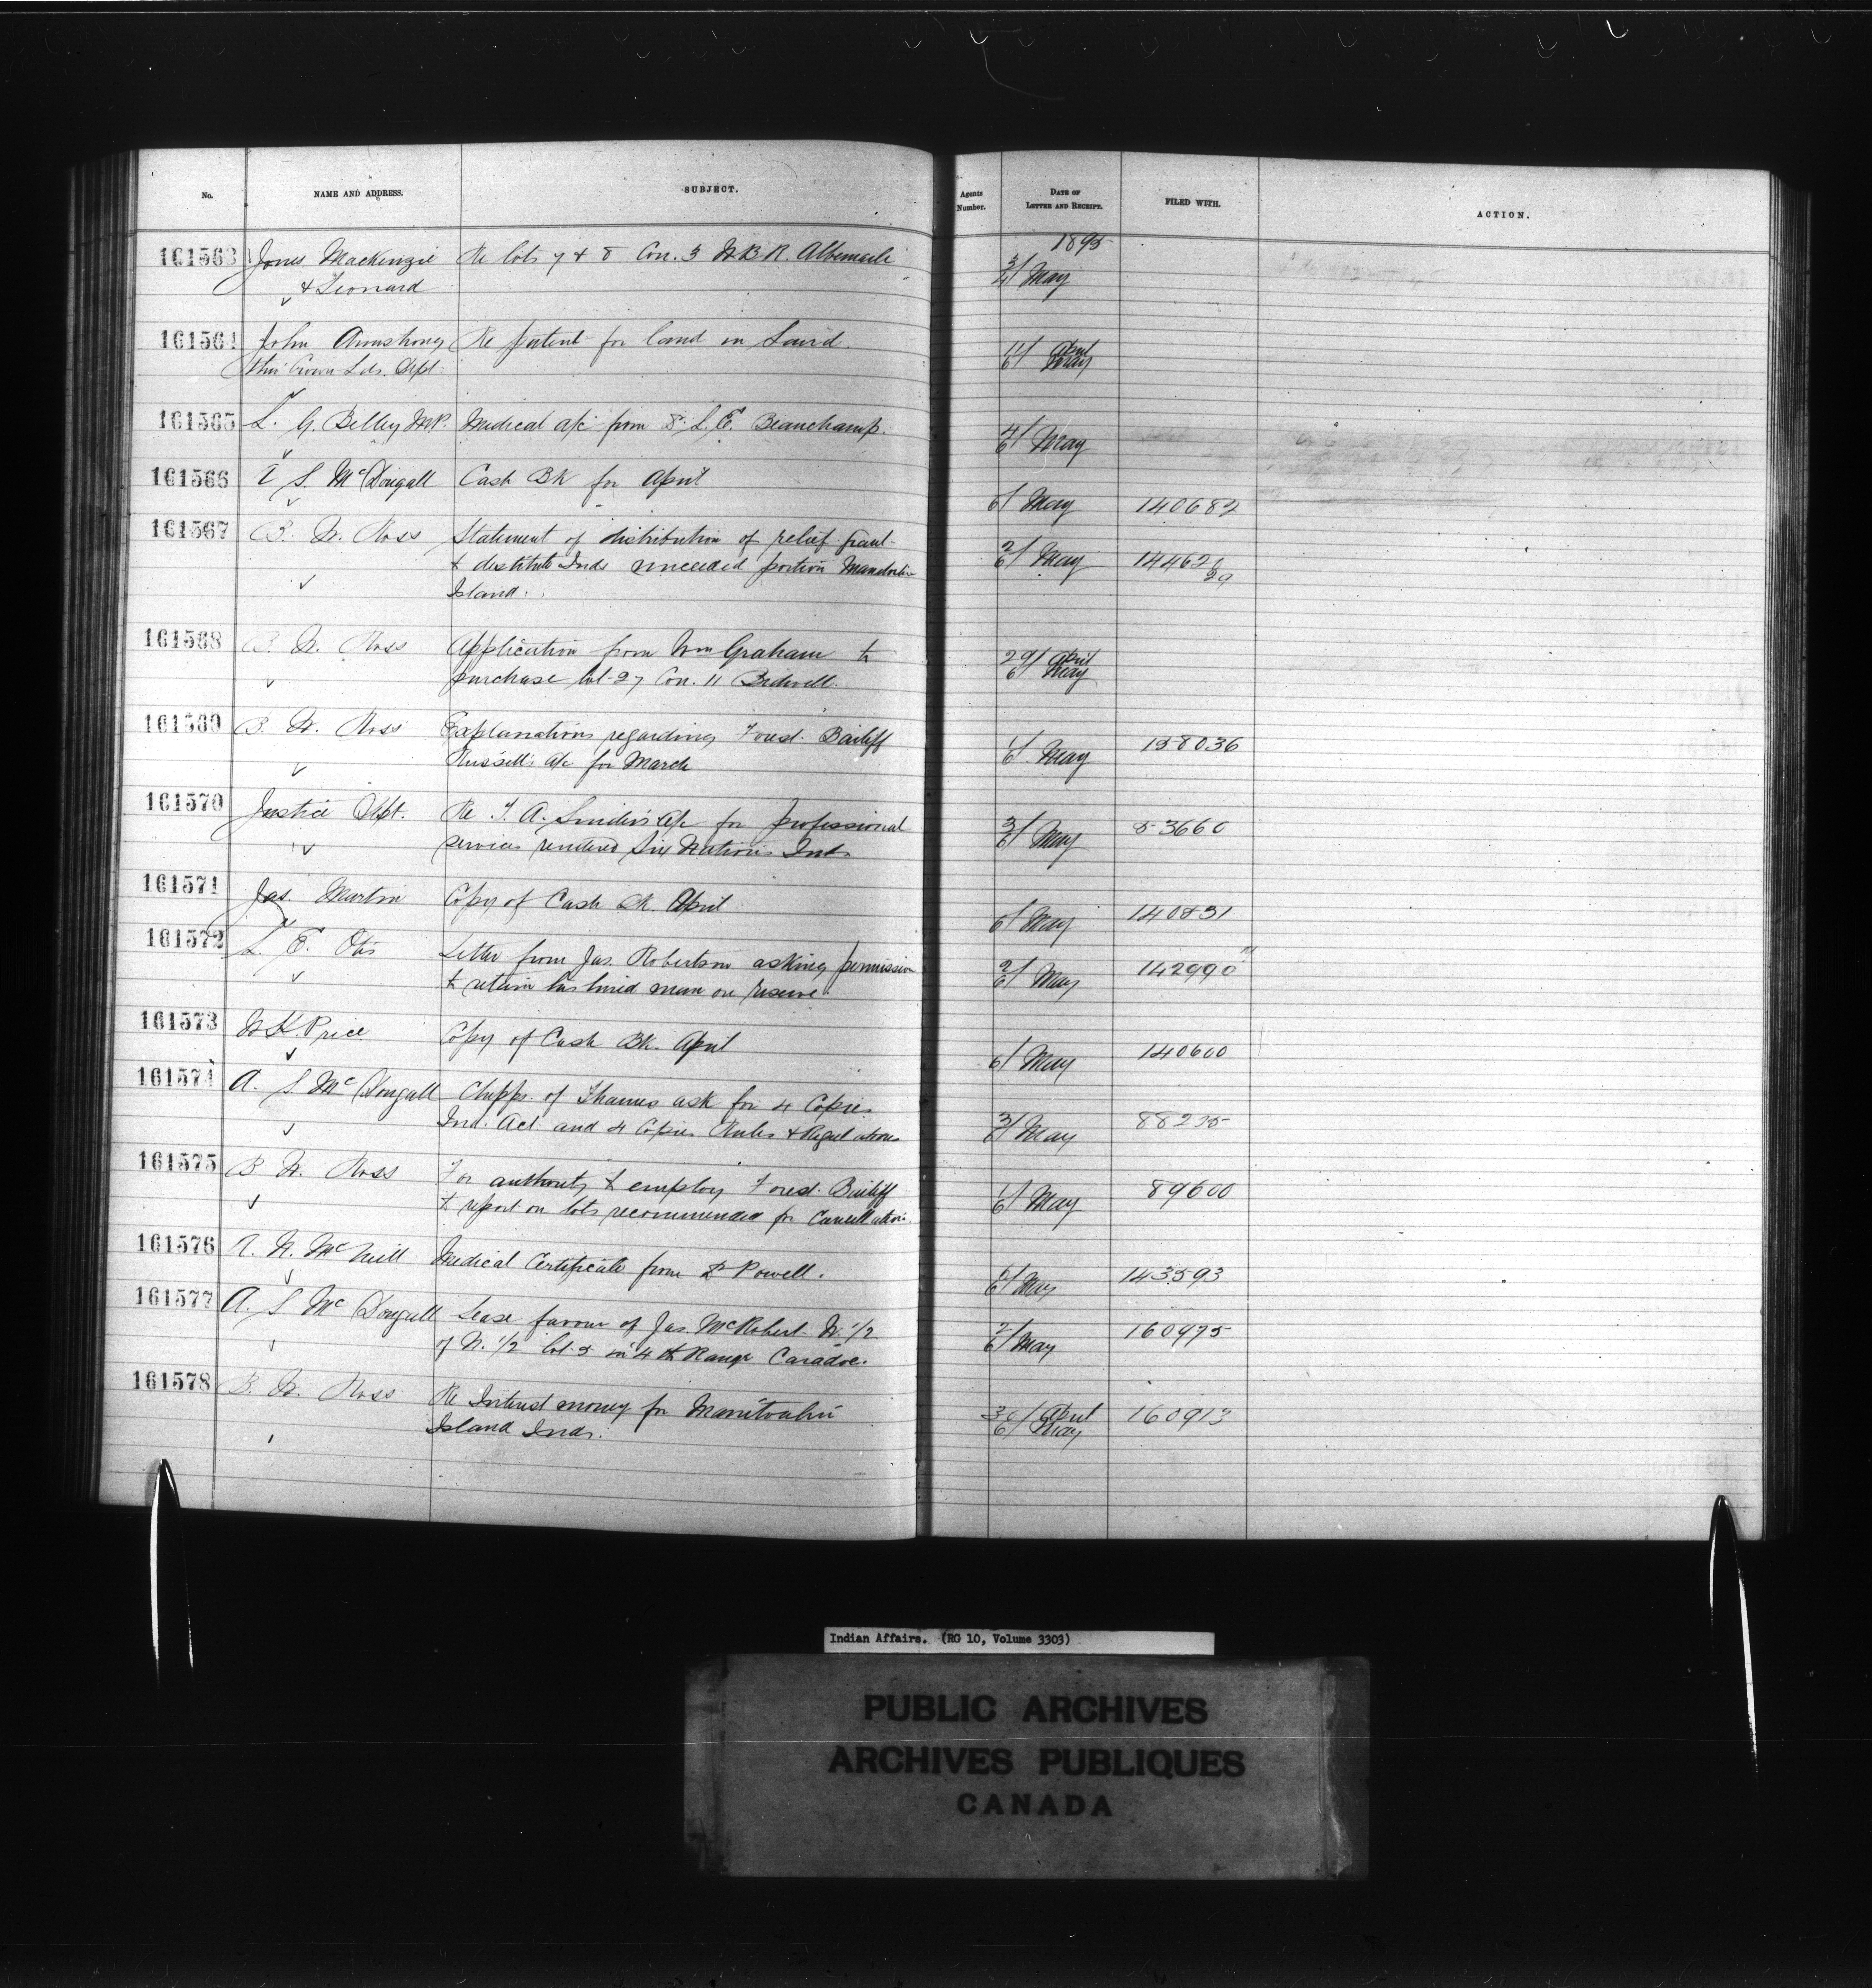 No. NAME AND ADDRESS. SUBJECT. Agents Number. DATE OF LETTER AND RECEIPT. FILED WITH. ACTION.
1895
161563 Jones Mackenzie Re lots 7 & 8 Con. 3 W.B.R. Albemarle 3/6 May
& Leonard
161564 John Armstrong Re patent for land in Laird. 11/ April
thro' Crown Lds. Dept. 6/ May
161565 L. G. Belley M.P. Medical a/c from Dr. L. E. Beauchamp. 4/6 May
161566 A S McDougall Cash Bk for April 6/ May 140682
161567 B. W. Ross Statement of distribution of relief grant 2/6 May 14462
to destitute Inds unceded portion Manitoulin 29
Island.
161568 B. W. Ross Application from Wm Graham to 29/ April
purchase lot 27 Con. 11 Bidwell. 6/ May
161569 B. W. Ross Explanations regarding Forest Bailiff 1/6 May 158036
Russell's a/c for March
161570 Justice Dept. Re T. A. Snider's a/c for professional 3/6 May 53660
services rendered Six Nations Inds
161571 Jas. Martin Copy of Cash Bk. April 6/ May 140831
161572 L. E. Otis Letter from Jas. Robertson asking permission 2/6 May 142990
to retain his hired man on reserve.
161573 W H. Price Copy of Cash Bk. April 6/ May 140600
161574 A. S McDougall Chipps. of Thames ask for 4 Copies 3/6 May 88225
Ind. Act and 4 Copies Rules & Regulations
161575 B W. Ross For authority to employ Forest Bailiff 1/6 May 89600
to report on lots recommended for Cancellation.
161576 A. N. McNeill Medical Certificate from Dr Powell. 6/ May 143593
161577 A. S McDougall Lease favour of Jas. McRobert W. 1/2 2/6 May 160975
of N. 1/2 lot 5 in 4th Range Caradoc.
161578 B. W. Ross Re Interest money for Manitoulin 30/ April 160913
Island Inds. 6/ May
Indian Affairs. (RG 10, Volume 3303)
PUBLIC ARCHIVES
ARCHIVES PUBLIQUES
CANADA